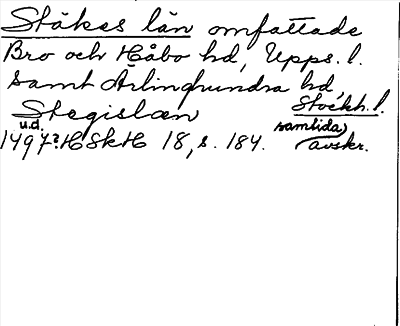 Stäkes län omfattade
Bro och Håbo hd, Upps. l.
samt Ärlinghundra hd,
Stockh. l.
Stegislæn
u.d. samtida
1497? HSkH 18, s. 184. avskr.